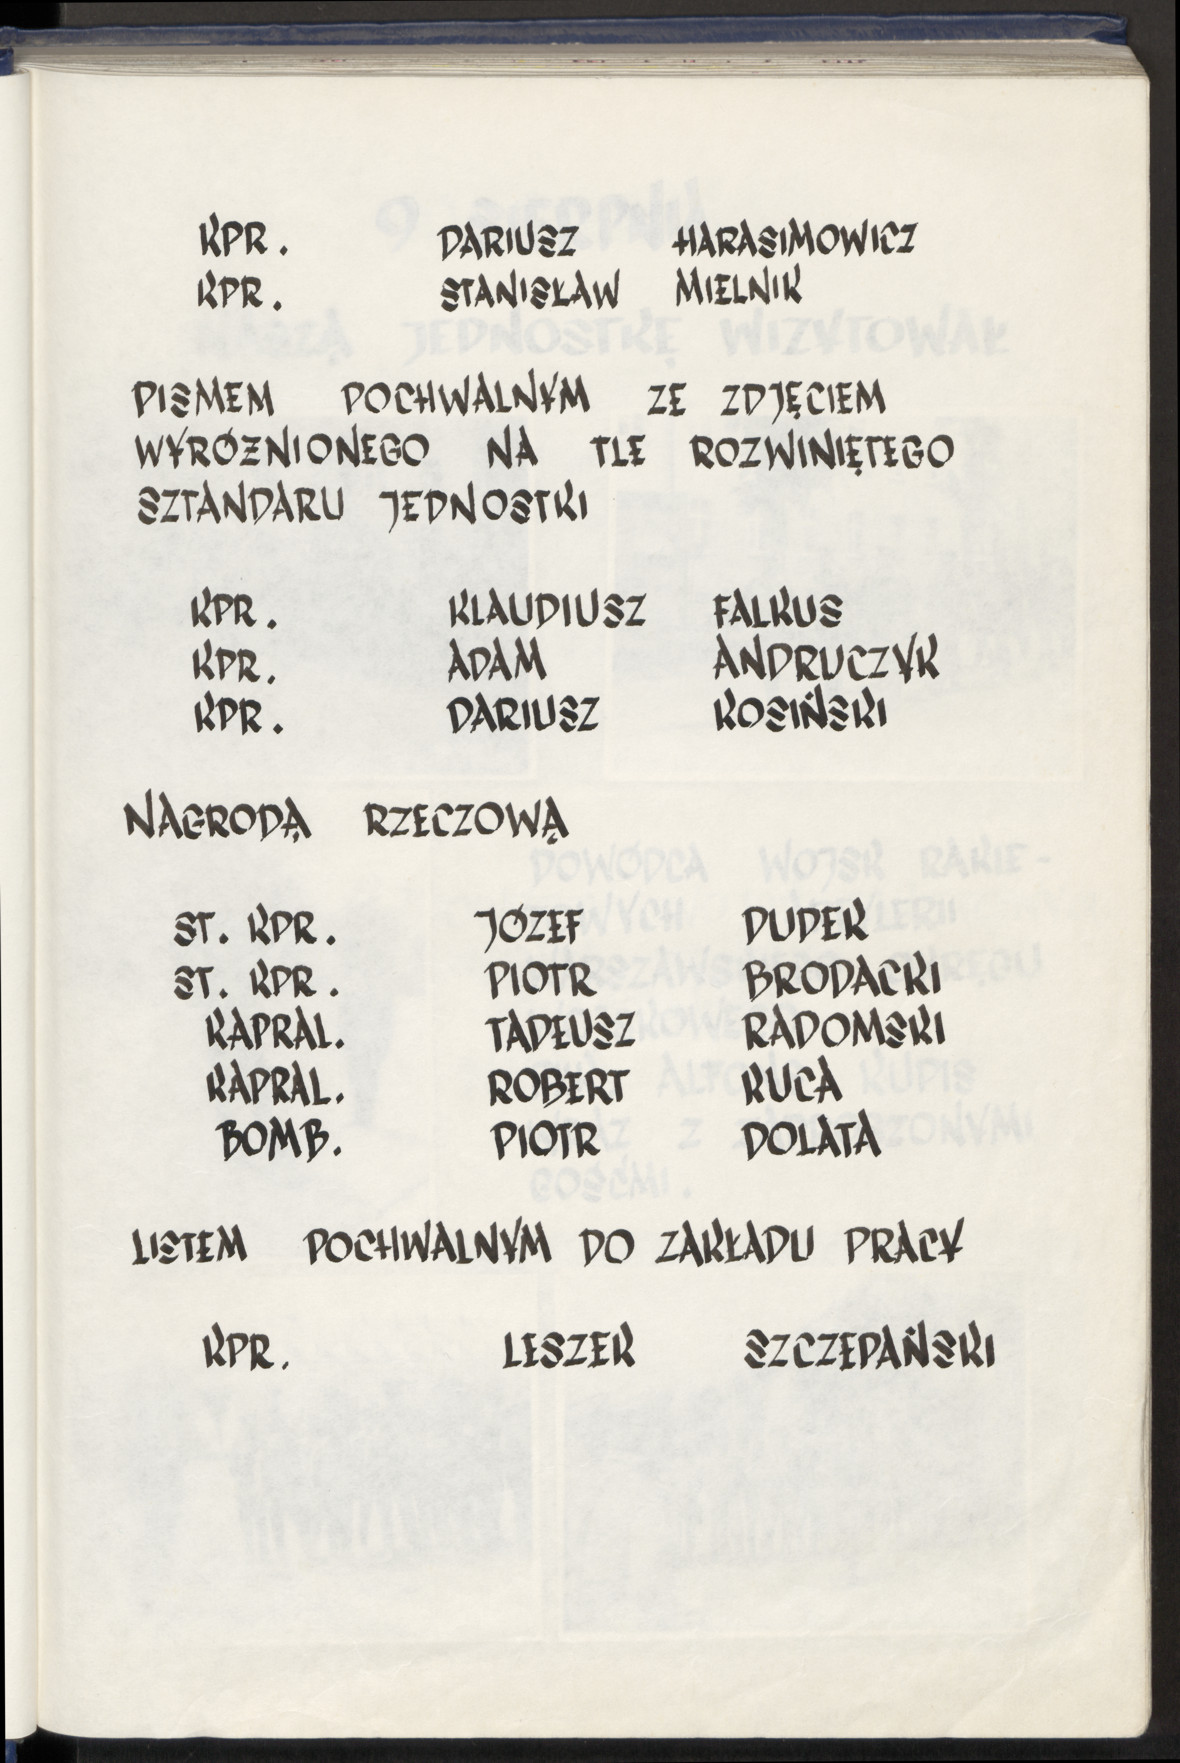 KPR. DARIUSZ HARASIMOWICZ
KPR. STANISŁAW MIELNIK
PISMEM POCHWALNYM ZE ZDJĘCIEM
WYRÓŻNIONEGO NA TLE ROZWINIĘTEGO
SZTANDARU JEDNOSTKI
KPR. KLAUDIUSZ FALKUS
KPR. ADAM ANDRUCZYK
KPR. DARIUSZ KOSIŃSKI
NAGRODĄ RZECZOWĄ
ST. KPR. JÓZEF DUDEK
ST. KPR. PIOTR BRODACKI
KAPRAL. TADEUSZ RADOMSKI
KAPRAL. ROBERT KUCA
BOMB. PIOTR DOLATA
LISTEM POCHWALNYM DO ZAKŁADU PRACY
KPR. LESZEK SZCZEPAŃSKI